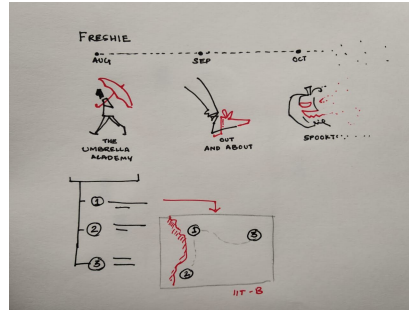 FRESHIE
AUG SEP OCT
THE
UMBRELLA
ACADEMY
OUT
AND ABOUT
SPOOKT
1
2
3
1
3
2
IIT-B